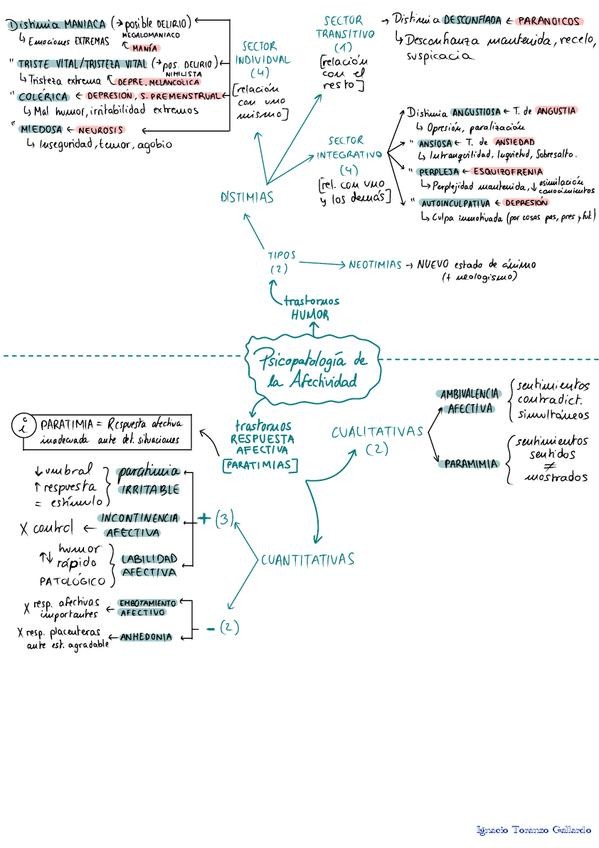 Distimia MANIACA (→ posible DELIRIO)
MEGALOMANIACO
↳ Emociones EXTREMAS ↖ MANÍA
" TRISTE VITAL/TRISTEZA VITAL (→ pos. DELIRIO)
NIHILISTA
↳ Tristeza extrema ↖ DEPRE. MELANCÓLICA
" COLÉRICA ← DEPRESIÓN, S. PREMENSTRUAL
↳ Mal humor, irritabilidad extremos
" MIEDOSA ← NEUROSIS
↳ Inseguridad, temor, agobio
SECTOR
INDIVIDUAL
(4)
[relación
con uno
mismo]
SECTOR
TRANSITIVO
(1)
[relación
con el
resto]
→ Distimia DESCONFIADA ← PARANOICOS
↳ Desconfianza mantenida, recelo,
suspicacia
SECTOR
INTEGRATIVO
(4)
[rel. con uno
y los demás]
Distimia ANGUSTIOSA ← T. de ANGUSTIA
↳ Opresión, paralización
" ANSIOSA ← T. de ANSIEDAD
↳ Intranquilidad, Inquietud, Sobresalto.
" PERPLEJA ← ESQUIZOFRENIA
↳ Perplejidad mantenida, ↓ asimilación
conocimientos
" AUTOINCULPATIVA ← DEPRESIÓN
↳ Culpa inmotivada (por cosas pas, pres y fut)
DISTIMIAS
TIPOS
(2)
NEOTIMIAS → NUEVO estado de ánimo
(≠ neologismo)
trastornos
HUMOR
Psicopatología de
la Afectividad
trastornos
RESPUESTA
AFECTIVA
[PARATIMIAS]
PARATIMIA = Respuesta afectiva
inadecuada ante det. situaciones
CUALITATIVAS
(2)
AMBIVALENCIA
AFECTIVA
sentimientos
contradict.
simultáneos
PARAMIMIA
sentimientos
sentidos
≠
mostrados
CUANTITATIVAS
+ (3)
↓ umbral
↑ respuesta
= estímulo
paratimia
IRRITABLE
X control ← INCONTINENCIA
AFECTIVA
↑↓ humor
rápido
PATOLÓGICO
LABILIDAD
AFECTIVA
- (2)
X resp. afectivas
importantes ← EMBOTAMIENTO
AFECTIVO
X resp. placenteras
ante est. agradable ← ANHEDONIA
Ignacio Toranzo Gallardo